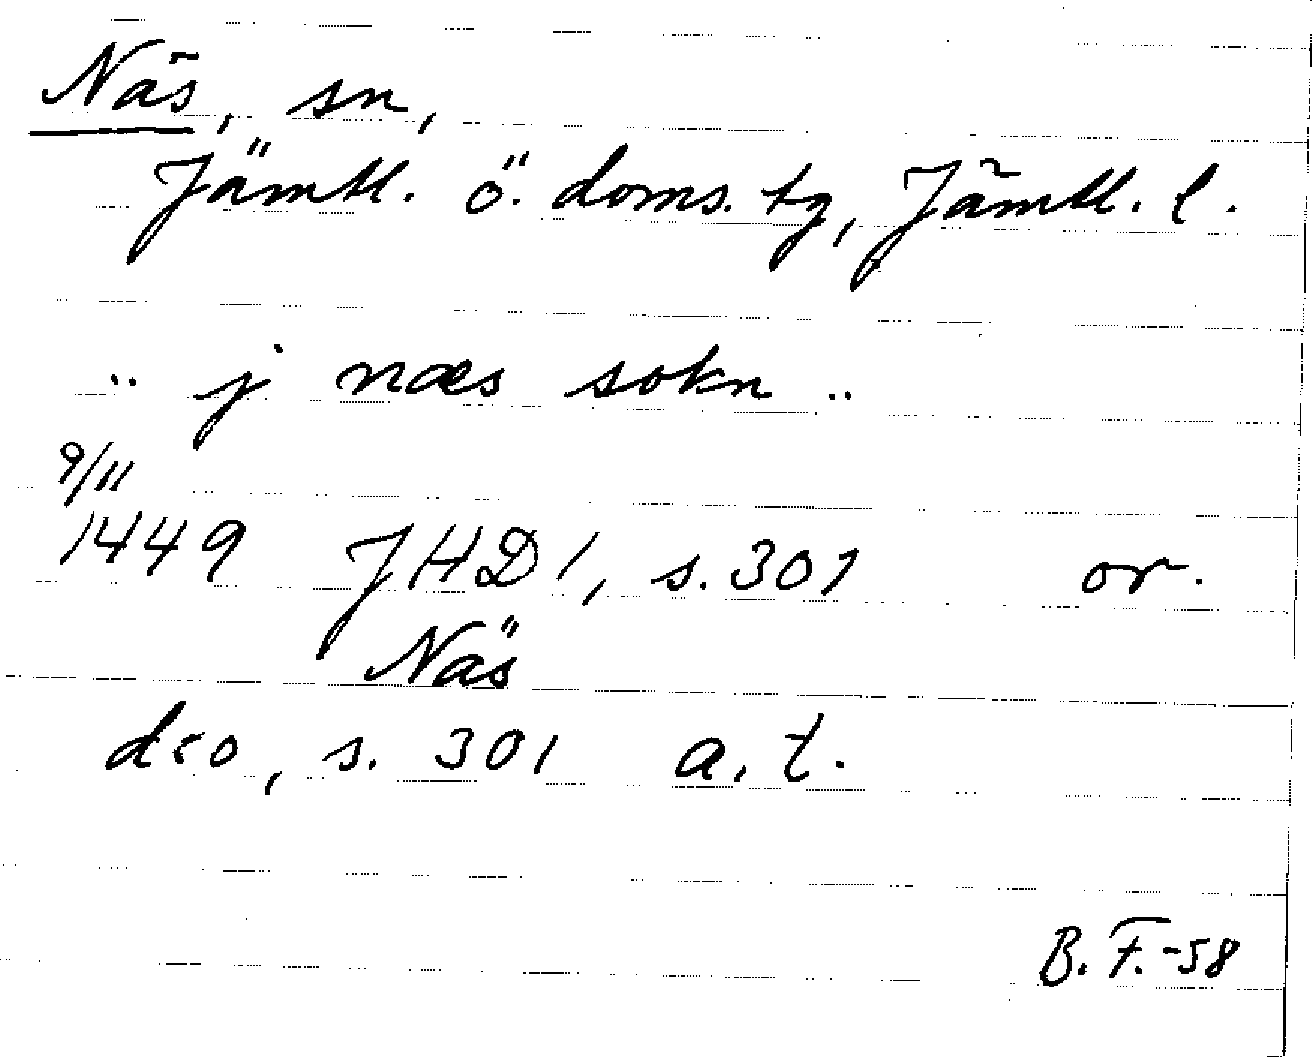 Näs, sn,
Jämtl. ö. doms. tg, Jämtl. l.
.. j næs sokn ..
9/11
1449 JHD 1, s. 301 or.
Näs
d:o, s. 301 a. t.
B. F. -58